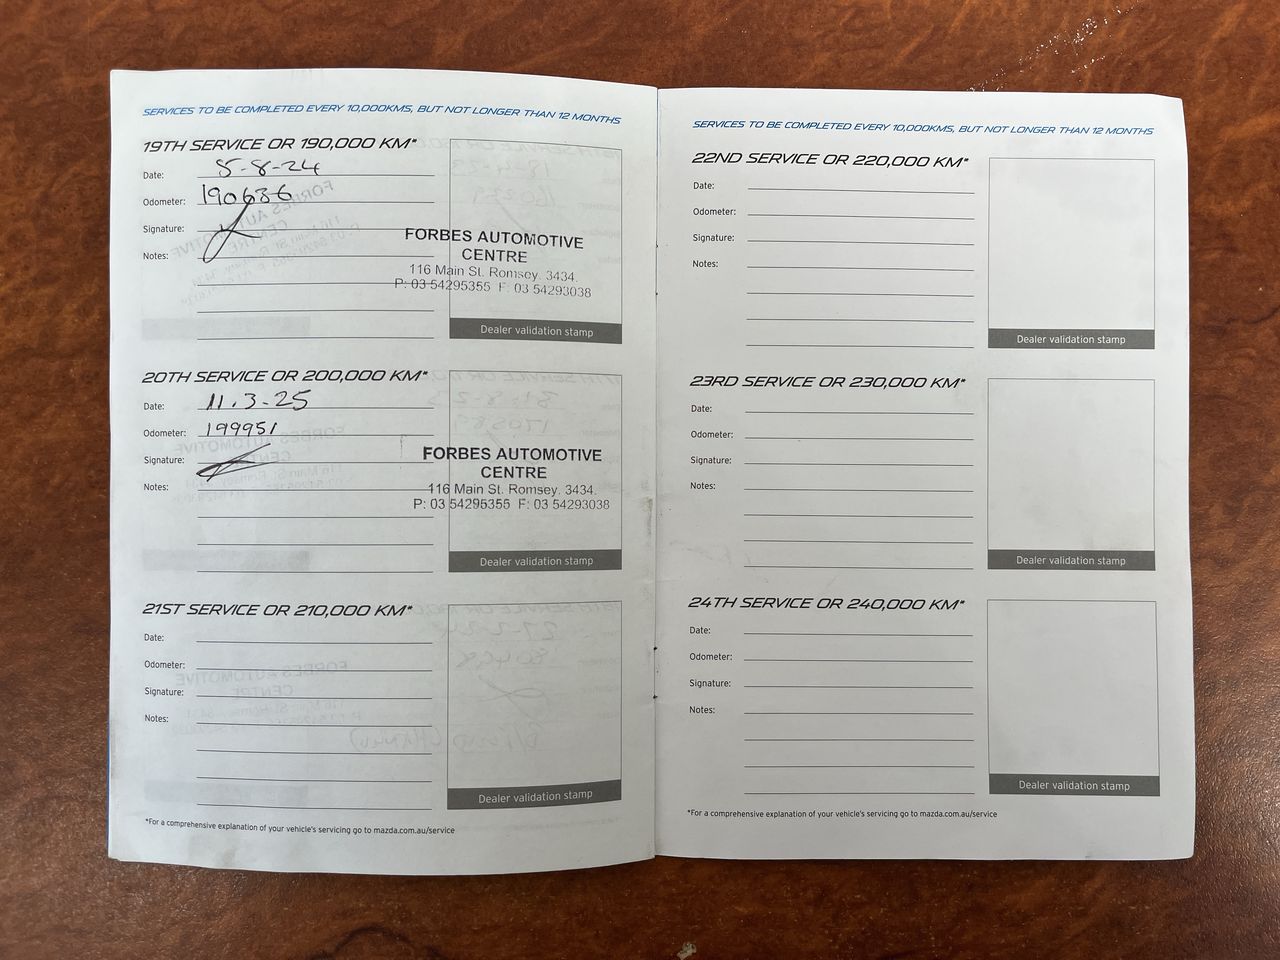 SERVICES TO BE COMPLETED EVERY 10,000KMS, BUT NOT LONGER THAN 12 MONTHS
19TH SERVICE OR 190,000 KM*
Date: 5-8-24
Odometer: 190686
Signature:
Notes:
FORBES AUTOMOTIVE
CENTRE
116 Main St. Romsey. 3434.
P: 03 54295355 F: 03 54293038
Dealer validation stamp
20TH SERVICE OR 200,000 KM*
Date: 11.3-25
Odometer: 199951
Signature:
Notes:
FORBES AUTOMOTIVE
CENTRE
116 Main St. Romsey. 3434.
P: 03 54295355 F: 03 54293038
Dealer validation stamp
21ST SERVICE OR 210,000 KM*
Date:
Odometer:
Signature:
Notes:
Dealer validation stamp
*For a comprehensive explanation of your vehicle's servicing go to mazda.com.au/service
SERVICES TO BE COMPLETED EVERY 10,000KMS, BUT NOT LONGER THAN 12 MONTHS
22ND SERVICE OR 220,000 KM*
Date:
Odometer:
Signature:
Notes:
Dealer validation stamp
23RD SERVICE OR 230,000 KM*
Date:
Odometer:
Signature:
Notes:
Dealer validation stamp
24TH SERVICE OR 240,000 KM*
Date:
Odometer:
Signature:
Notes:
Dealer validation stamp
*For a comprehensive explanation of your vehicle's servicing go to mazda.com.au/service